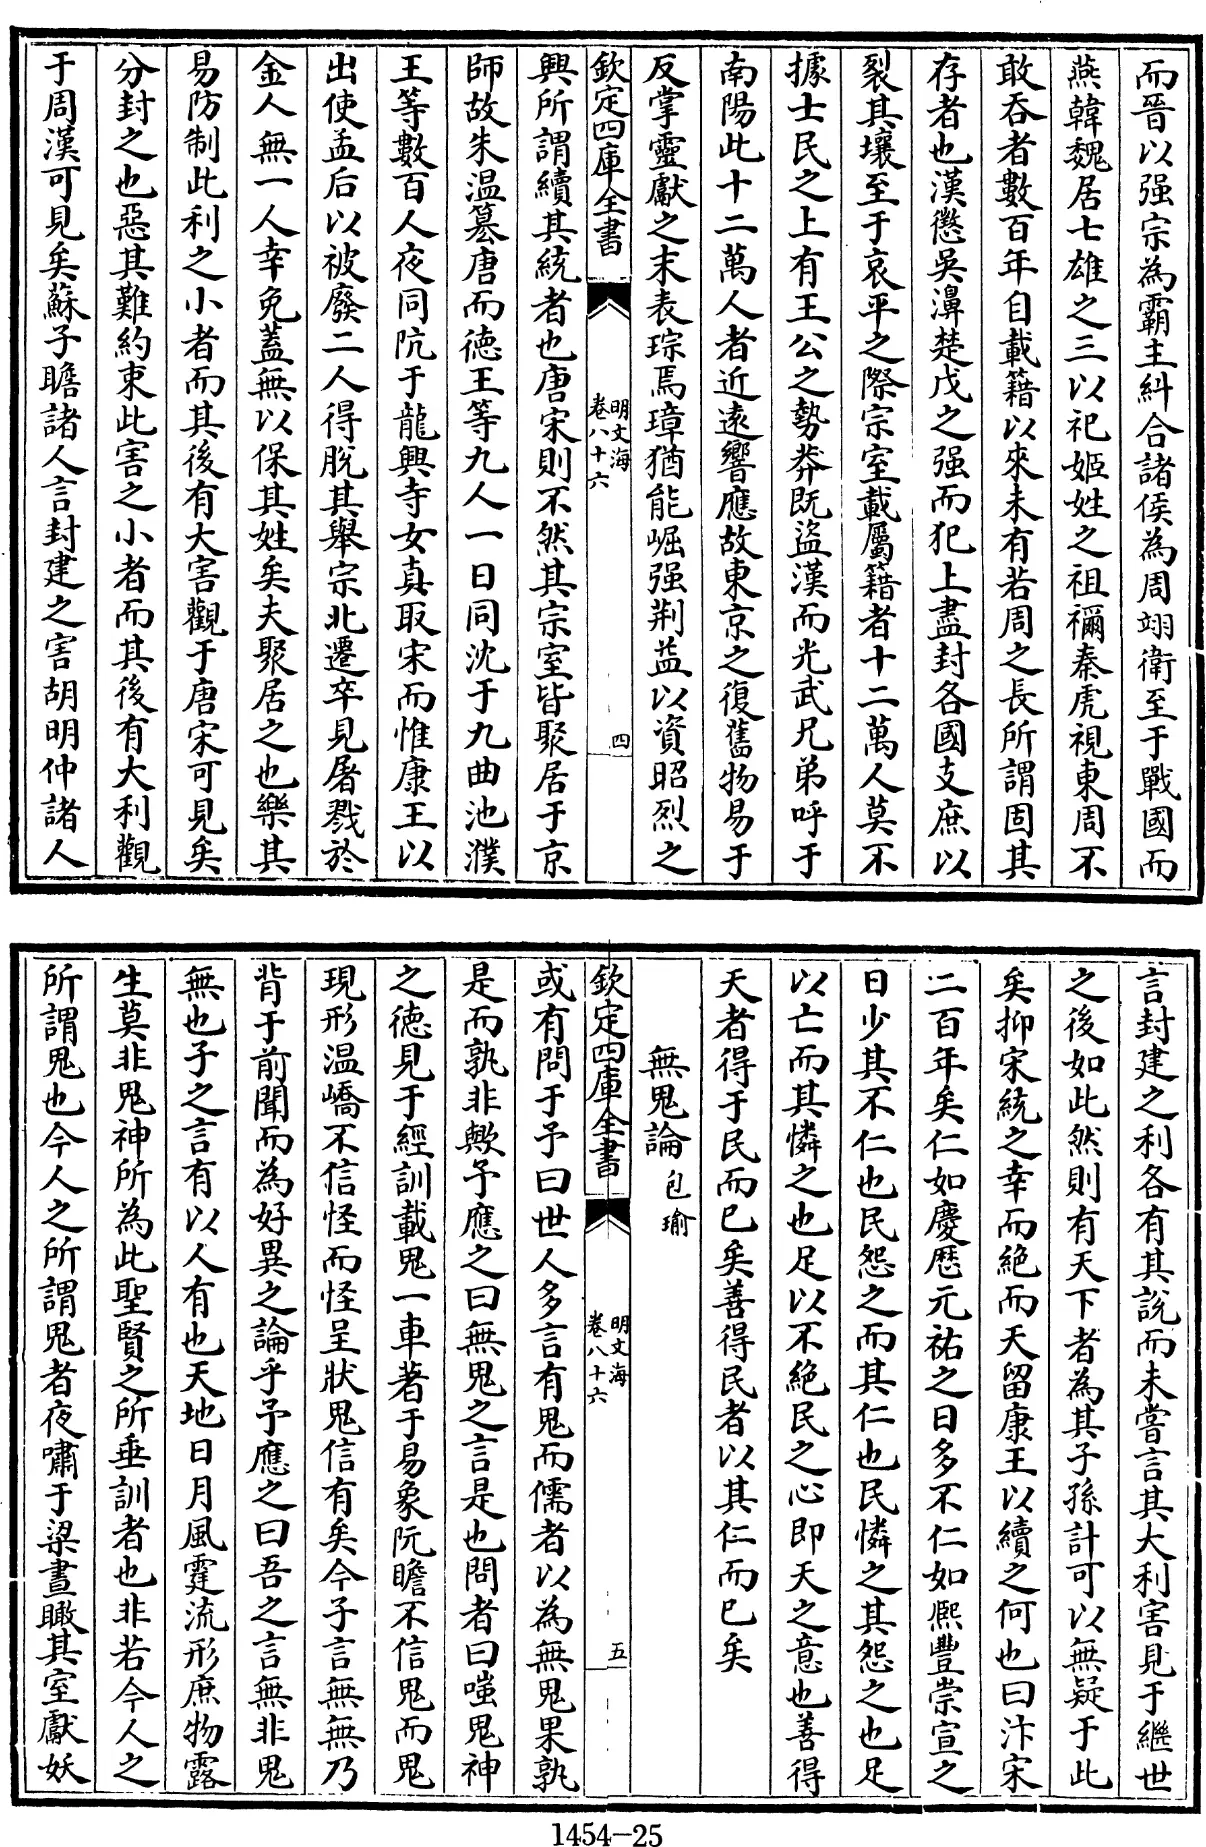 而晉以强宗為霸主糾合諸侯為周翊衛至于戰國而
燕韓魏居七雄之三以祀姬姓之祖禰秦虎視東周不
敢吞者數百年自載籍以來未有若周之長所謂固其
存者也漢懲吳濞楚戊之强而犯上盡封各國支庶以
裂其壤至于哀平之際宗室載屬籍者十二萬人莫不
據士民之上有王公之勢莽既盜漢而光武兄弟呼于
南陽此十二萬人者近遠響應故東京之復舊物易于
反掌靈獻之末表琮焉璋猶能崛强荆益以資昭烈之
欽定四庫全書
明文海
卷八十六
四
興所謂續其統者也唐宋則不然其宗室皆聚居于京
師故朱温簒唐而德王等九人一日同沈于九曲池濮
王等數百人夜同阬于龍興寺女真取宋而惟康王以
出使孟后以被廢二人得脫其舉宗北遷卒見屠戮於
金人無一人幸免蓋無以保其姓矣夫聚居之也樂其
易防制此利之小者而其後有大害觀于唐宋可見矣
分封之也惡其難約束此害之小者而其後有大利觀
于周漢可見矣蘇子瞻諸人言封建之害胡明仲諸人
言封建之利各有其說而未嘗言其大利害見于繼世
之後如此然則有天下者為其子孫計可以無疑于此
矣抑宋統之幸而絶而天留康王以續之何也曰汴宋
二百年矣仁如慶厯元祐之日多不仁如熈豐崇宣之
日少其不仁也民怨之而其仁也民憐之其怨之也足
以亡而其憐之也足以不絶民之心即天之意也善得
天者得于民而已矣善得民者以其仁而已矣
無鬼論 包瑜
欽定四庫全書
明文海
卷八十六
五
或有問于予曰世人多言有鬼而儒者以為無鬼果孰
是而孰非歟予應之曰無鬼之言是也問者曰嗤鬼神
之德見于經訓載鬼一車著于易象阮瞻不信鬼而鬼
現形温嶠不信怪而怪呈狀鬼信有矣今子言無無乃
背于前聞而為好異之論乎予應之曰吾之言無非鬼
無也子之言有以人有也天地日月風霆流形庶物露
生莫非鬼神所為此聖賢之所垂訓者也非若今人之
所謂鬼也今人之所謂鬼者夜嘯于梁晝瞰其室獻妖
1454-25